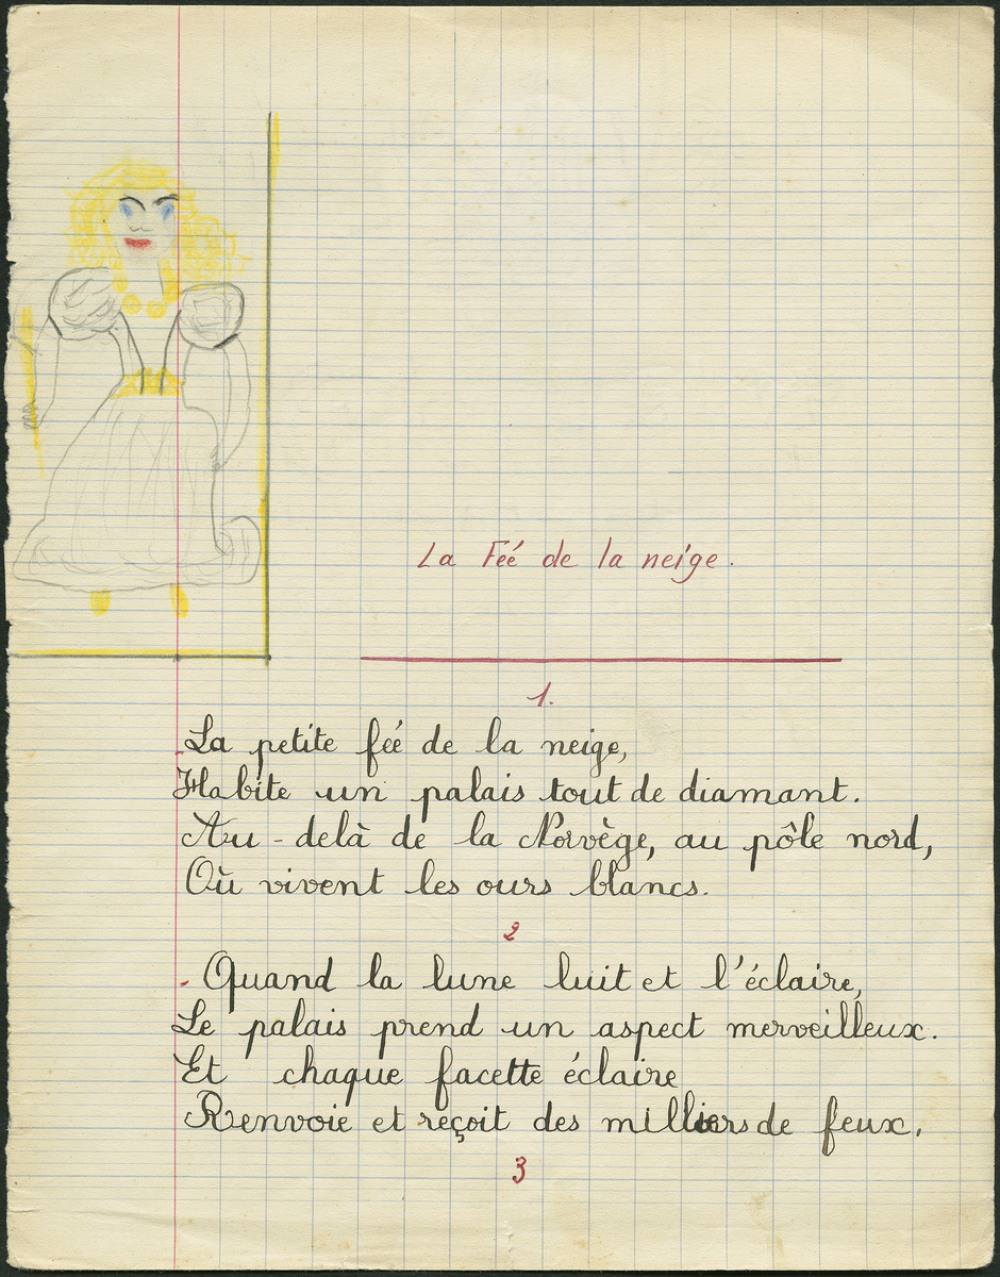 La Feé de la neige.
1.
La petite feé de la neige,
Habite un palais tout de diamant.
Au-delà de la Norvège, au pôle nord,
Où vivent les ours blancs.
2
- Quand la lune luit et l'éclaire,
Le palais prend un aspect merveilleux.
Et chaque facette éclaire
Renvoie et reçoit des milliers de feux.
3